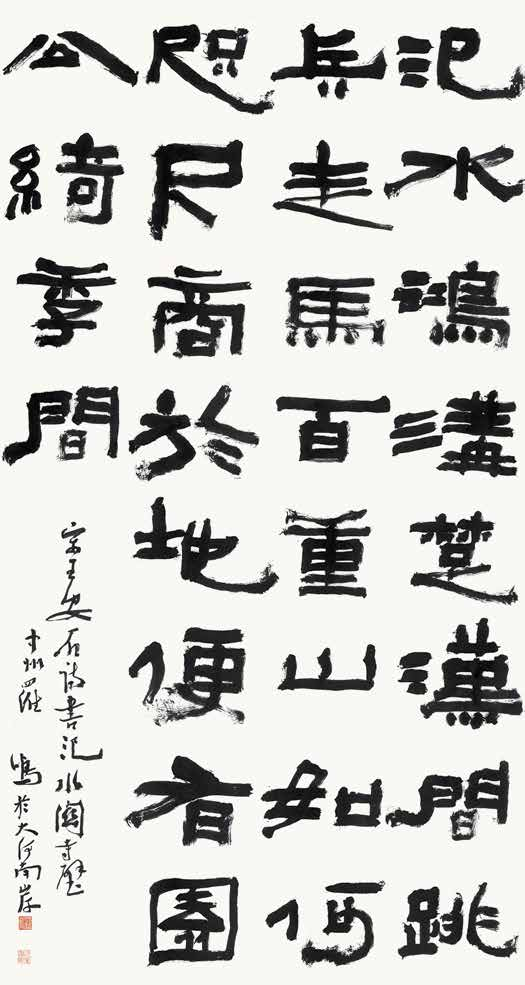 汜水鴻溝楚漢間跳
兵走馬百重山如何
咫尺商於地便有園
公綺季間
宋王安石詩書汜水關寺壁
中州羅鳴於大河南岸